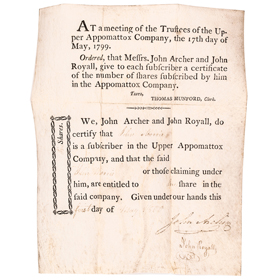 AT a meeting of the Trustees of the Up-
per Appomattox Company, the 17th day of
May, 1799.
Ordered, that Messrs. John Archer and John
Royall, give to each subscriber a certificate
of the number of shares subscribed by him
in the Appomattox Company.
Teste,
THOMAS MUNFORD, Clerk.
Shares.
We, John Archer and John Royall, do
certify that
is a subscriber in the Upper Appomattox
Company, and that the said
or those claiming under
him, are entitled to share in the
said company. Given under our hands this
day of
John Archer
John Royall